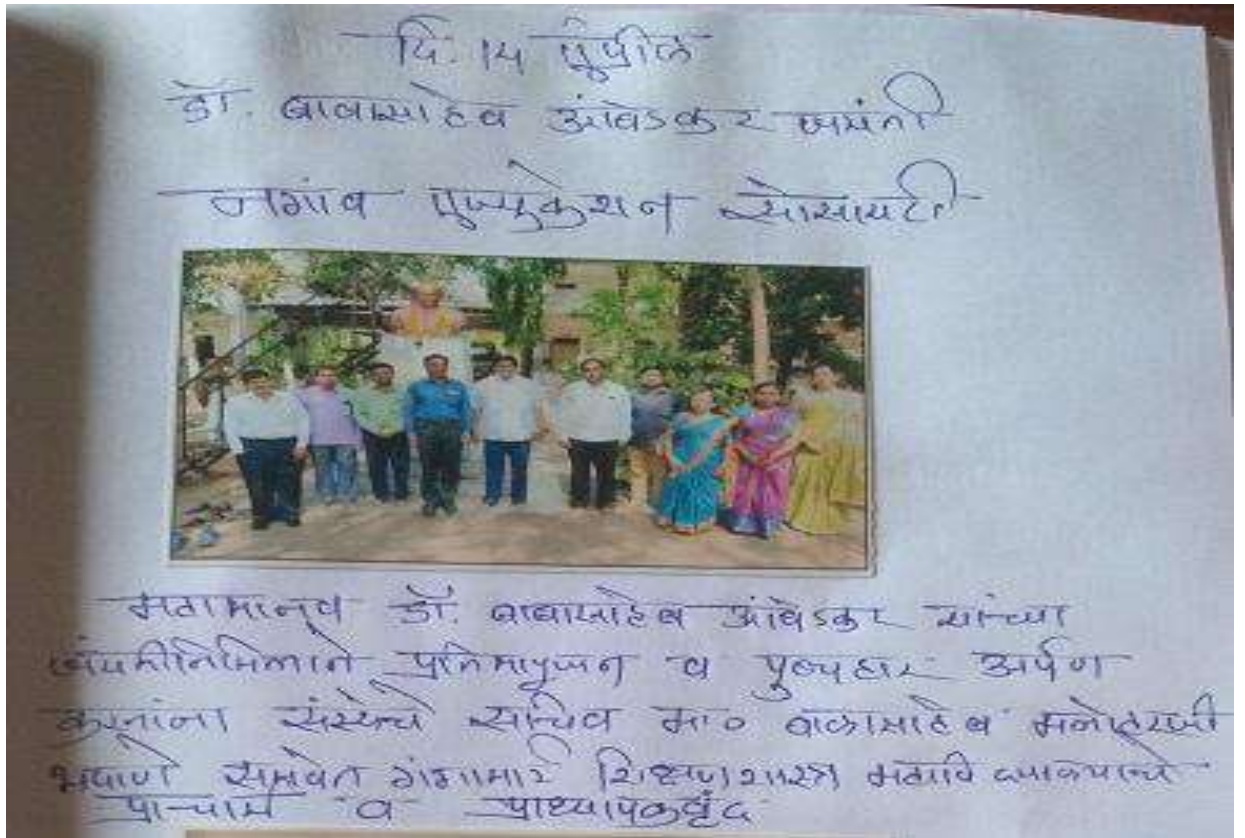 दि. 14 एप्रील
डॉ. बाबासाहेब आंबेडकर जयंती
नगांव एज्युकेशन सोसायटी
महामानव डॉ. बाबासाहेब आंबेडकर यांच्या
जयंतीनिमित्ताने प्रतिमापूजन व पुष्पहार अर्पण
करतांना संस्थेचे सचिव मा० बाळासाहेब मनोहरजी
भदाणे समवेत गंगामाई शिक्षणशास्त्र महाविद्यालयाचे
प्राचार्य व प्राध्यापकवृंद